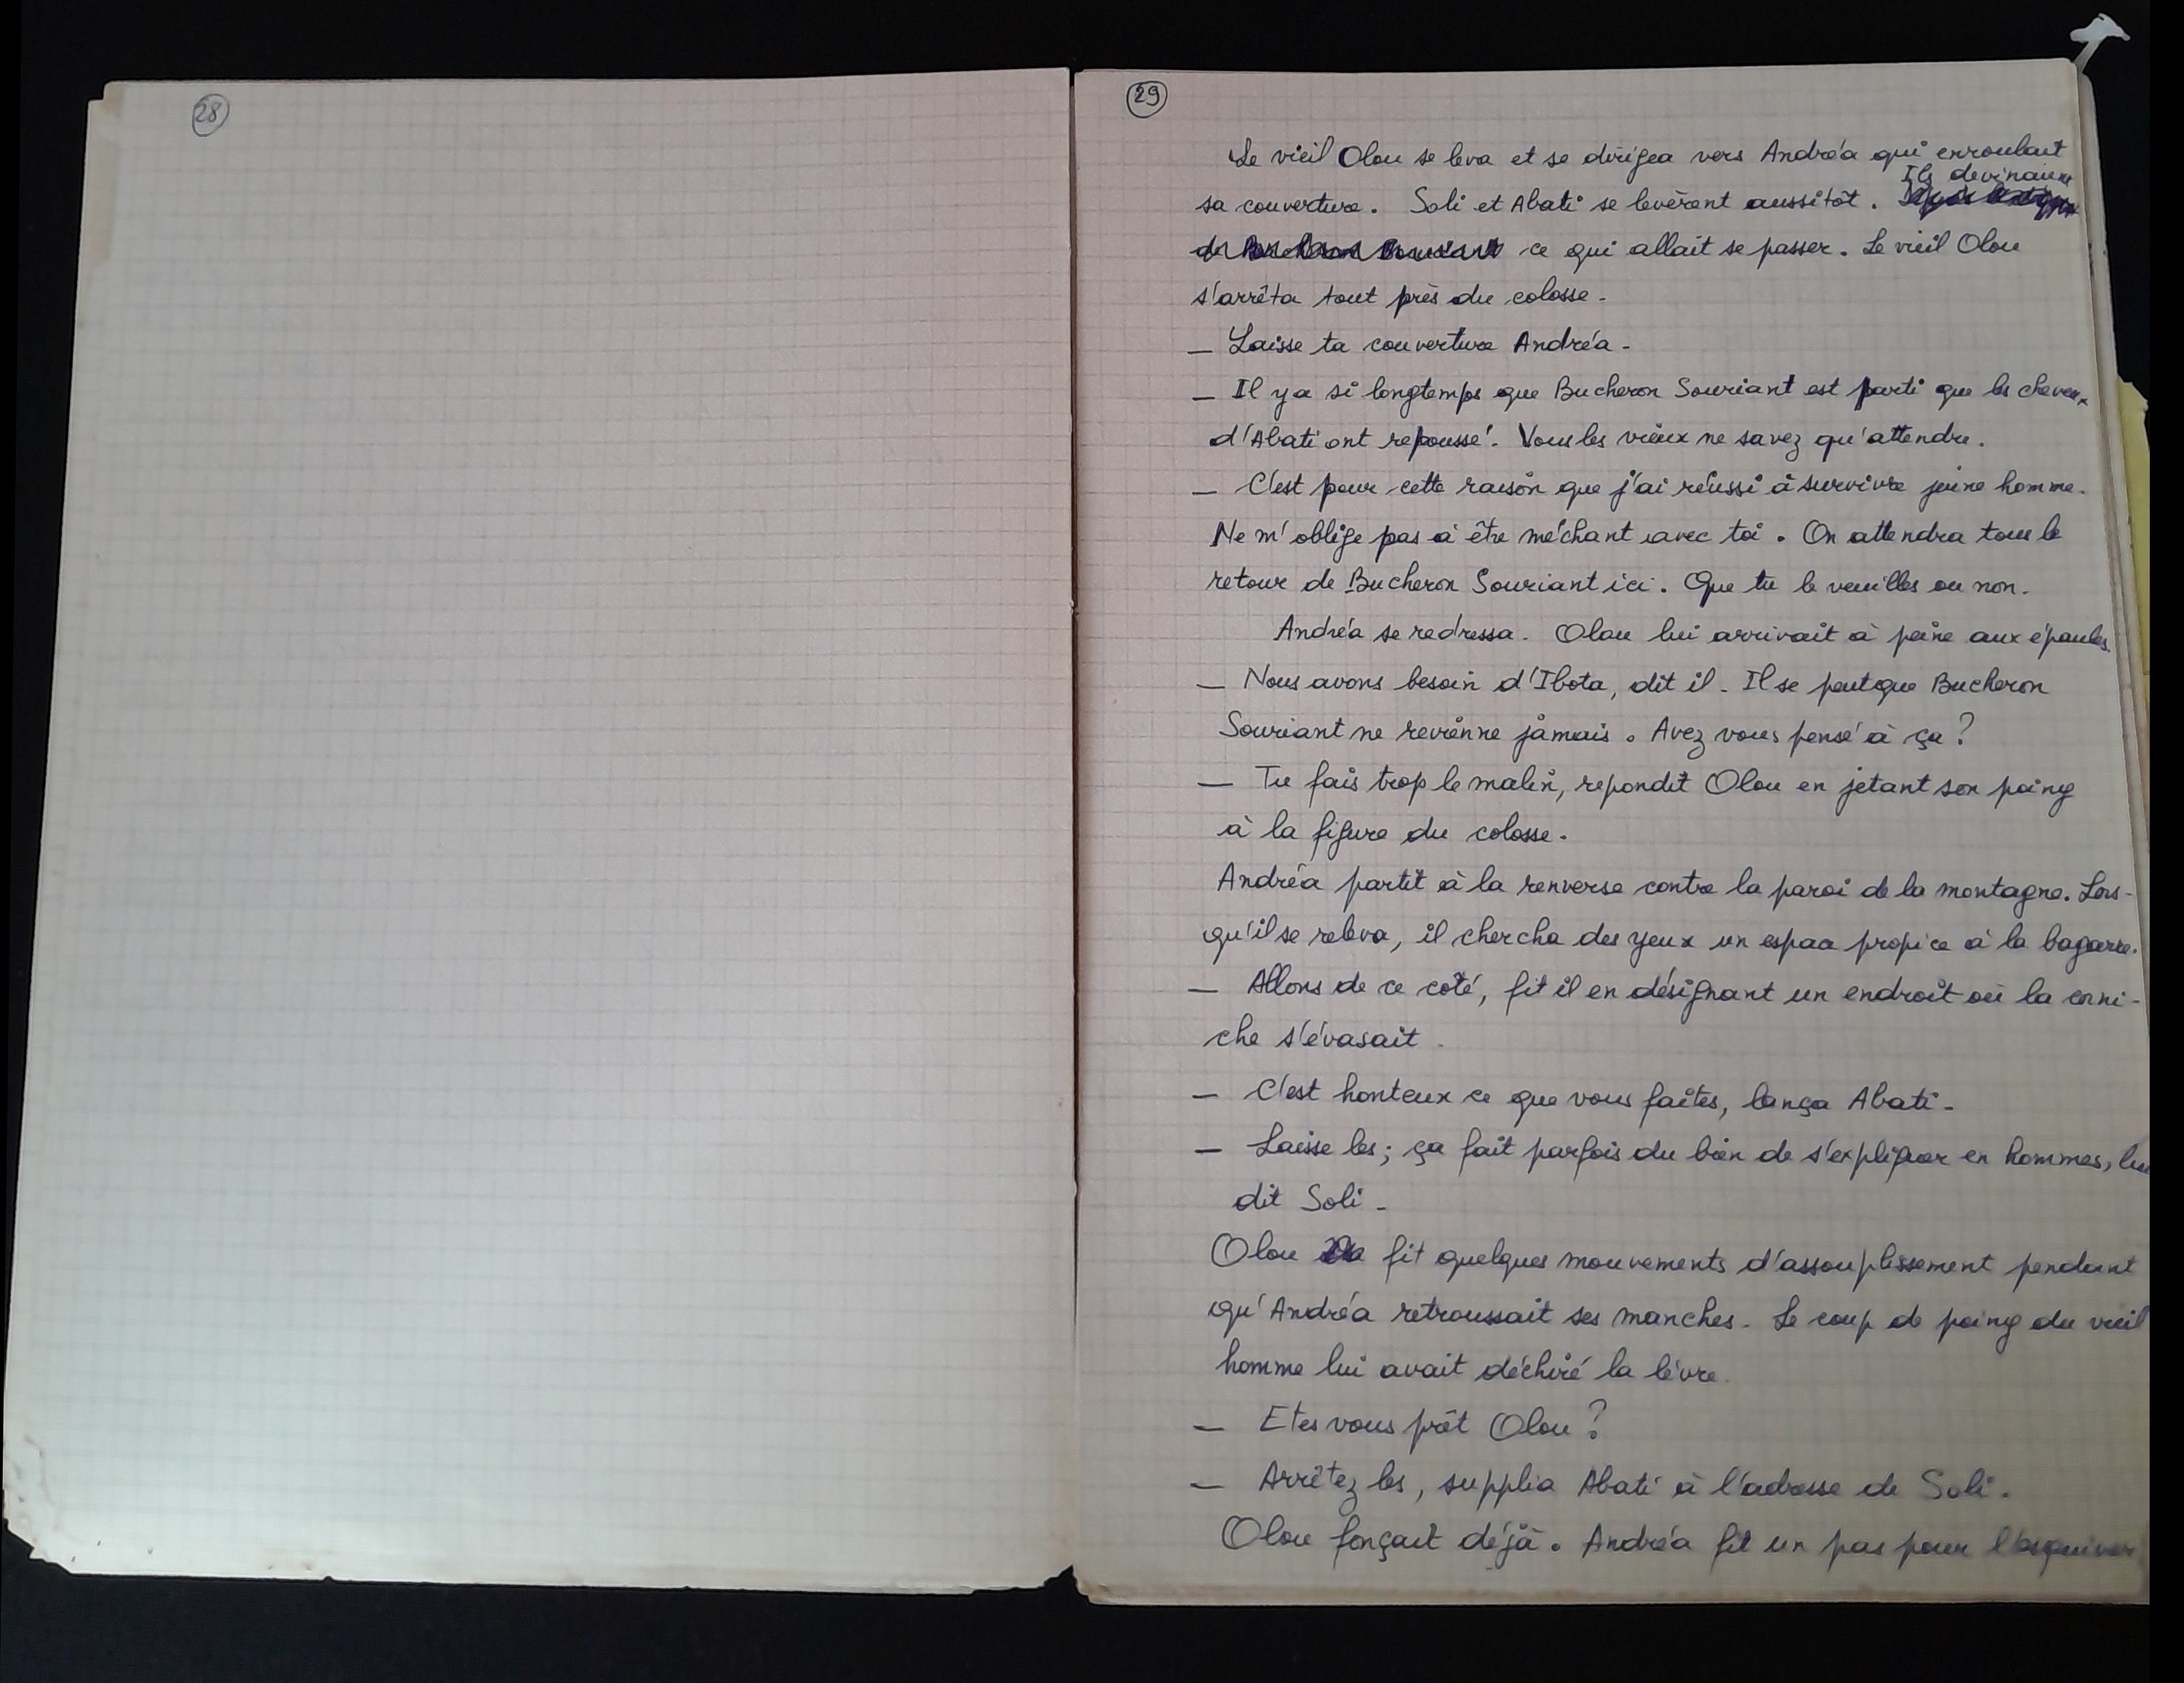 28
29
Le vieil Olou se leva et se dirigea vers Andréa qui enroulait
Ils devinaient
sa couverture. Soli et Abati se levèrent aussitôt.
ce qui allait se passer. Le vieil Olou
s'arrêta tout près du colosse.
— Laisse ta couverture Andréa.
— Il y a si longtemps que Bucheron Souriant est parti que les cheveux
d'Abati ont repoussé. Vous les vieux ne savez qu'attendre.
— C'est pour cette raison que j'ai réussi à survivre jeune homme.
Ne m'oblige pas à être méchant avec toi. On attendra tous le
retour de Bucheron Souriant ici. Que tu le veuilles ou non.
Andréa se redressa. Olou lui arrivait à peine aux épaules.
— Nous avons besoin d'Ibota, dit il. Il se peut que Bucheron
Souriant ne revienne jamais. Avez vous pensé à ça ?
— Tu fais trop le malin, repondit Olou en jetant son poing
à la figure du colosse.
Andréa partit à la renverse contre la paroi de la montagne. Lors-
qu'il se releva, il chercha des yeux un espace propice à la bagarre.
— Allons de ce coté, fit il en désignant un endroit où la corni-
che s'évasait.
— C'est honteux ce que vous faites, lança Abati.
— Laisse les ; ça fait parfois du bien de s'expliquer en hommes, lui
dit Soli.
Olou fit quelques mouvements d'assouplissement pendant
qu'Andréa retroussait ses manches. Le coup de poing du vieil
homme lui avait déchiré la lèvre.
— Etes vous prêt Olou ?
— Arrêtez les, supplia Abati à l'adresse de Soli.
Olou fonçait déjà. Andréa fit un pas pour l'esquiver